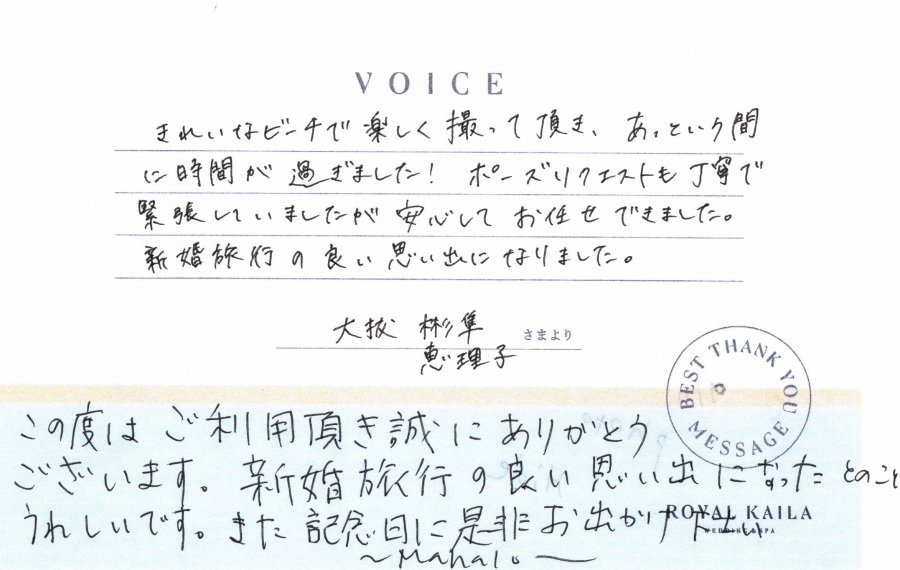 VOICE
きれいなビーチで楽しく撮って頂き、あっという間
に時間が過ぎました！ ポーズリクエストも丁寧で
緊張していましたが安心してお任せできました。
新婚旅行の良い思い出になりました。
大抜 彬隼 さまより
恵理子
BEST THANK YOU MESSAGE
この度はご利用頂き誠にありがとう
ございます。新婚旅行の良い思い出になったとのこと
うれしいです。また記念日に是非お出かけ下さい
ROYAL KAILA
WEDDING & SPA
〜Mahalo〜